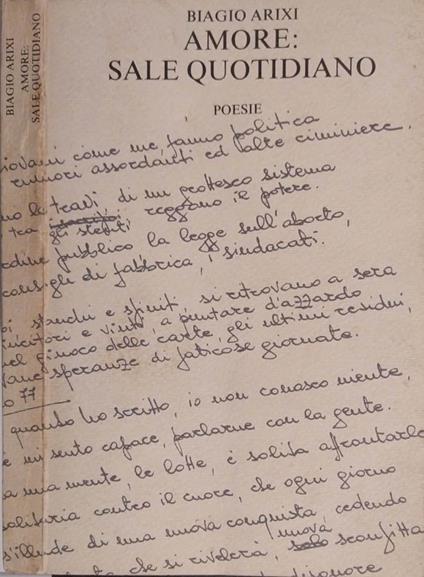 BIAGIO ARIXI
AMORE:
SALE QUOTIDIANO
BIAGIO ARIXI
AMORE:
SALE QUOTIDIANO
POESIE
giovani come me, fanno politica
rumori assordanti ed alte ciminiere.
no le travi, di un grottesco sistema
tra gli stenti, reggono il potere.
ordine pubblico la legge sull'aborto,
consigli di fabbrica, i sindacati.
oi stanchi e sfiniti, si ritrovano a sera
vincitori e vinti, a puntare d'azzardo
nel giuoco delle carte, gli ultimi residui,
vane speranze di faticose giornate.
o 77
quanto ho scritto, io non conosco niente,
e mi sento capace, parlarne con la gente.
a mia mente, le lotte, è solita affrontarle
solitaria contro il cuore, che ogni giorno
s'illude di una nuova conquista, cedendo
che si rivelerà, nuova solo sconfitta